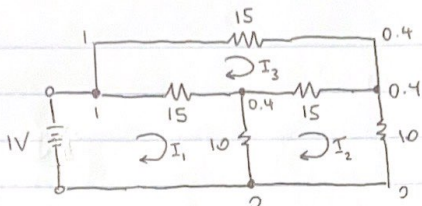 15
1 0.4
I3
1 15 0.4 15 0.4
1V I1 10 I2 10
0 0